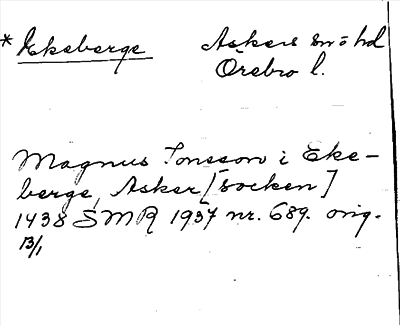 * Ekeberge Askers sn ö hd
Örebro l.
Magnus Jonsson i Eke-
berge, Asker [socken]
1438 SMR 1937 nr. 689. orig.
13/1